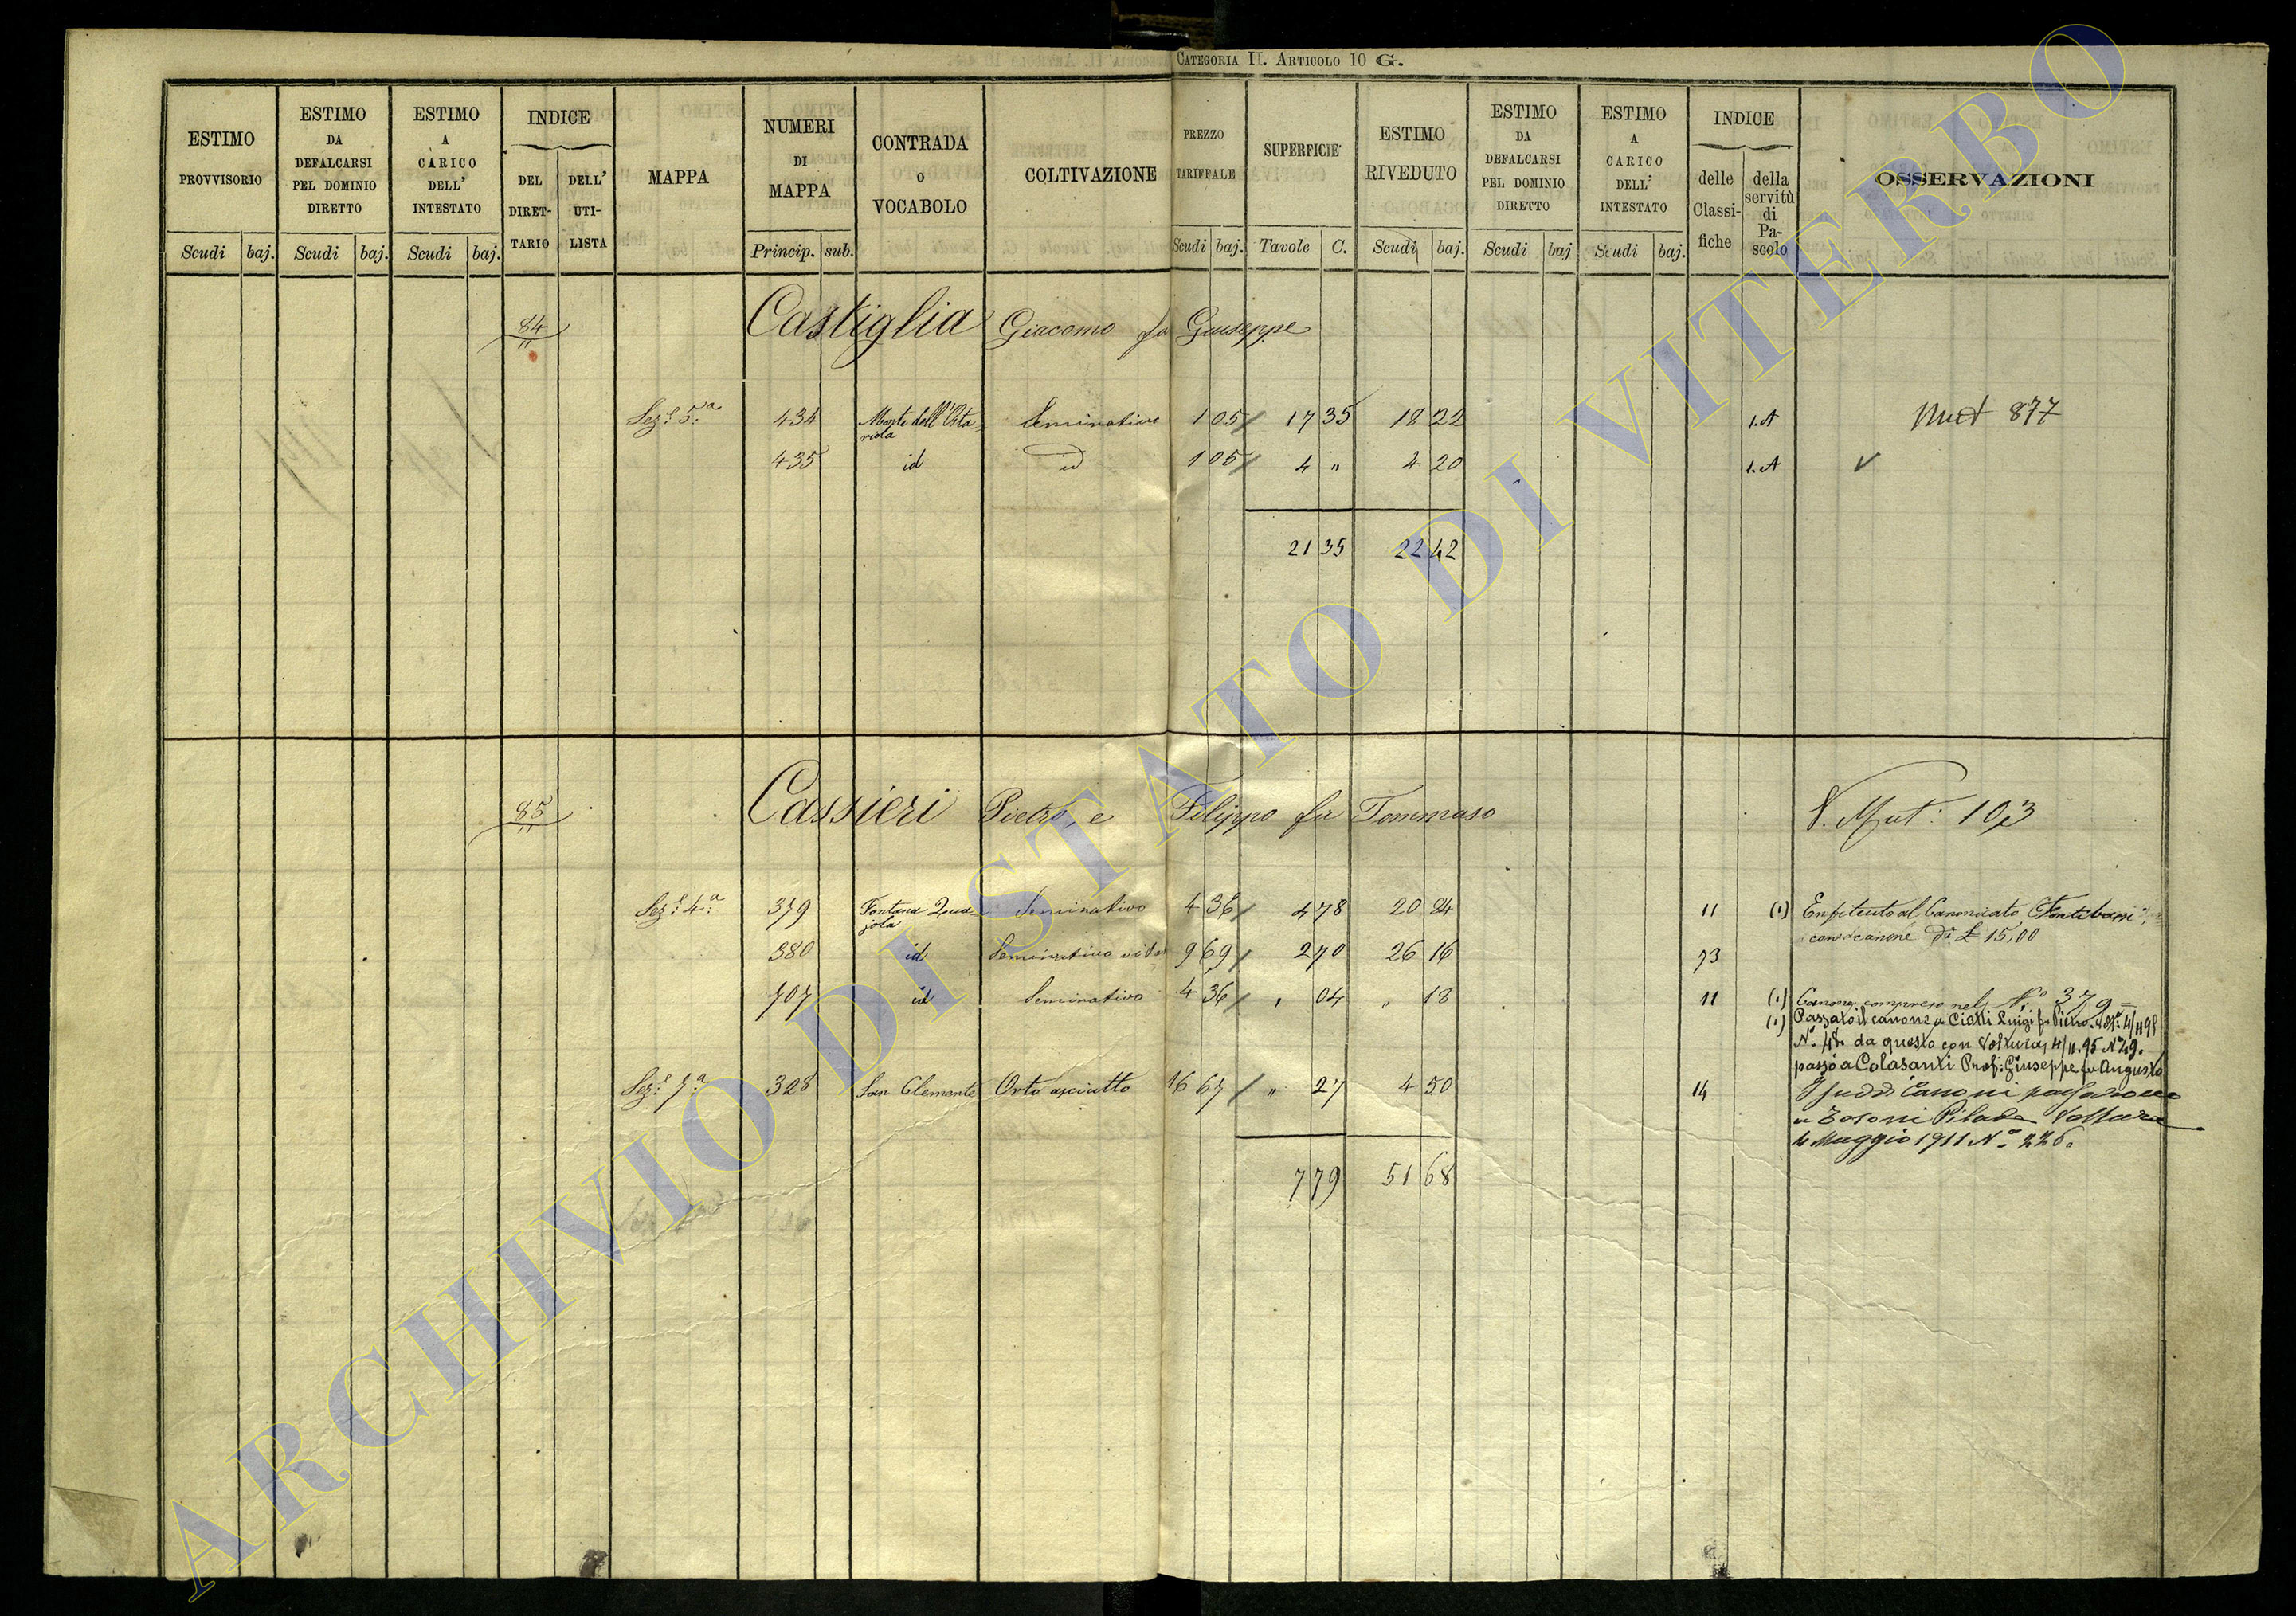 CATEGORIA II. ARTICOLO 10 G.
ESTIMO PROVVISORIO
ESTIMO DA DEFALCARSI PEL DOMINIO DIRETTO
ESTIMO A CARICO DELL' INTESTATO
INDICE
DEL DIRET-TARIO
DELL' UTI-LISTA
MAPPA
NUMERI DI MAPPA
CONTRADA O VOCABOLO
COLTIVAZIONE
PREZZO TARIFFALE
SUPERFICIE
ESTIMO RIVEDUTO
ESTIMO DA DEFALCARSI PEL DOMINIO DIRETTO
ESTIMO A CARICO DELL' INTESTATO
INDICE
delle Classi-fiche
della servitù di Pa-scolo
OSSERVAZIONI
Scudi baj. Scudi baj. Scudi baj. Princip. sub. Scudi baj. Tavole C. Scudi baj. Scudi baj Scudi baj.
84 Castiglia Giacomo fu Giuseppe
Sez.e 5.a 434 Monte dell'Osta-riola Seminativo 1 05 17 35 18 22 1.A Mut 877
435 id id 1 05 4 " 4 20 1.A
21 35 22 42
85 Cassieri Pietro, e Filippo fu Tommaso V. Mut: 103
Sez.e 4.a 379 Fontana Quajola Seminativo 4 36 4 78 20 84 11 (1) Enfiteuto al Canonicato Fontebassi
con canone di £ 15,00
380 id Seminativo vitato 9 69 2 70 26 16 73
707 id Seminativo 4 36 " 04 " 18 11 (1) Canone compreso nel N.o 379 =
(1) Passato il canone a Ciotti Luigi fu Pietro
da questo con Voltura 4/11.95 N.o 49.
passò a Colasanti Prof: Giuseppe fu Augusto
Sez.e 7.a 328 San Clemente Orto asciutto 16 67 " 27 4 50 14 I sudd.i Canoni passarono
a Tosoni Pilade Voltura
Maggio 1911 N.o 226.
7 79 51 68
ARCHIVIO DI STATO DI VITERBO